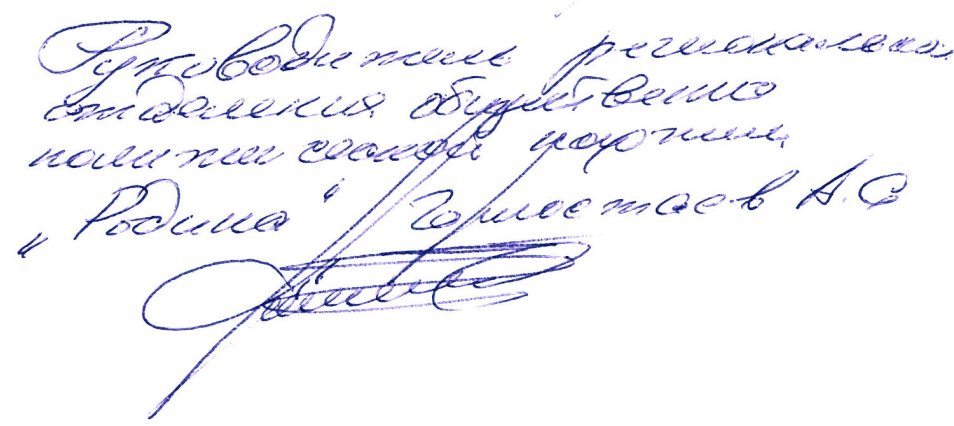 Руководитель регионального
отделения общественно
политической партии
„Родина“ Горностаев А.С